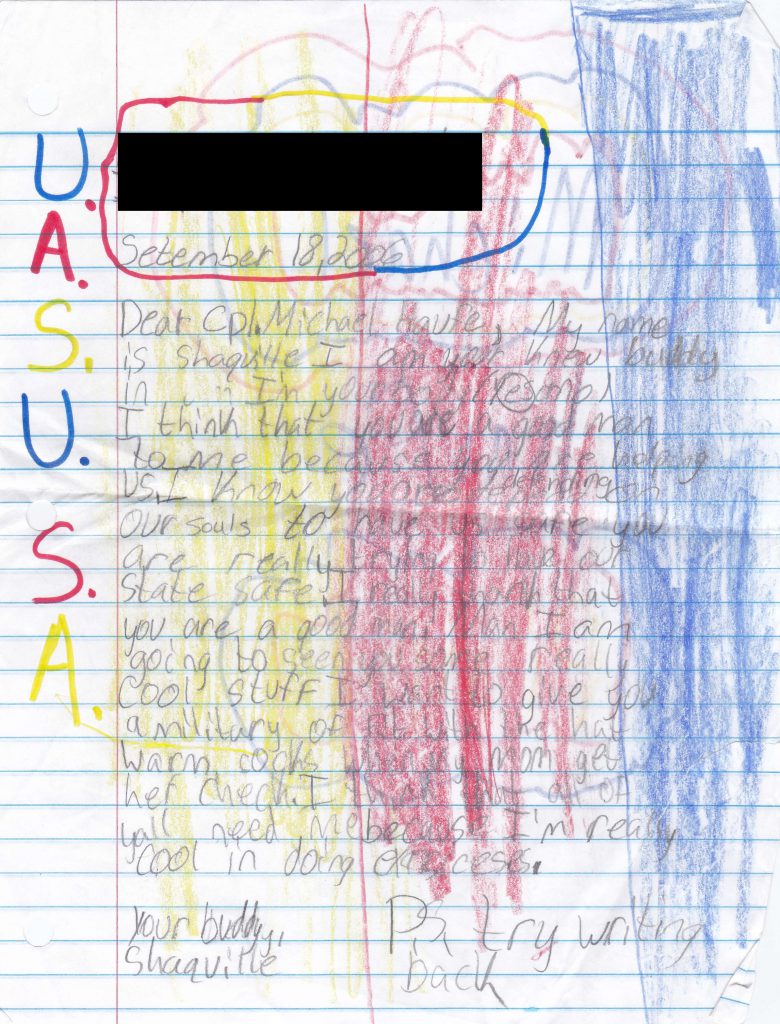 U.
A.
S.
U.
S.
A.
Setember 18, 2006
Dear Cpl. Michael, My name
is Shaquille I am your knew buddy
in I'm your
I think that you are a good man
to me because you are helping
us. I know you are defending
our souls to have us you
are really trying to our
state safe. I really that
you are a good man. I am
going to seen you some really
cool stuff I want to give you
a military of fit with the hat
warm when my mom get
her check. I all of
yall need me because I'm really
cool in doing
your buddy,
Shaquille
P.S. try writing
back